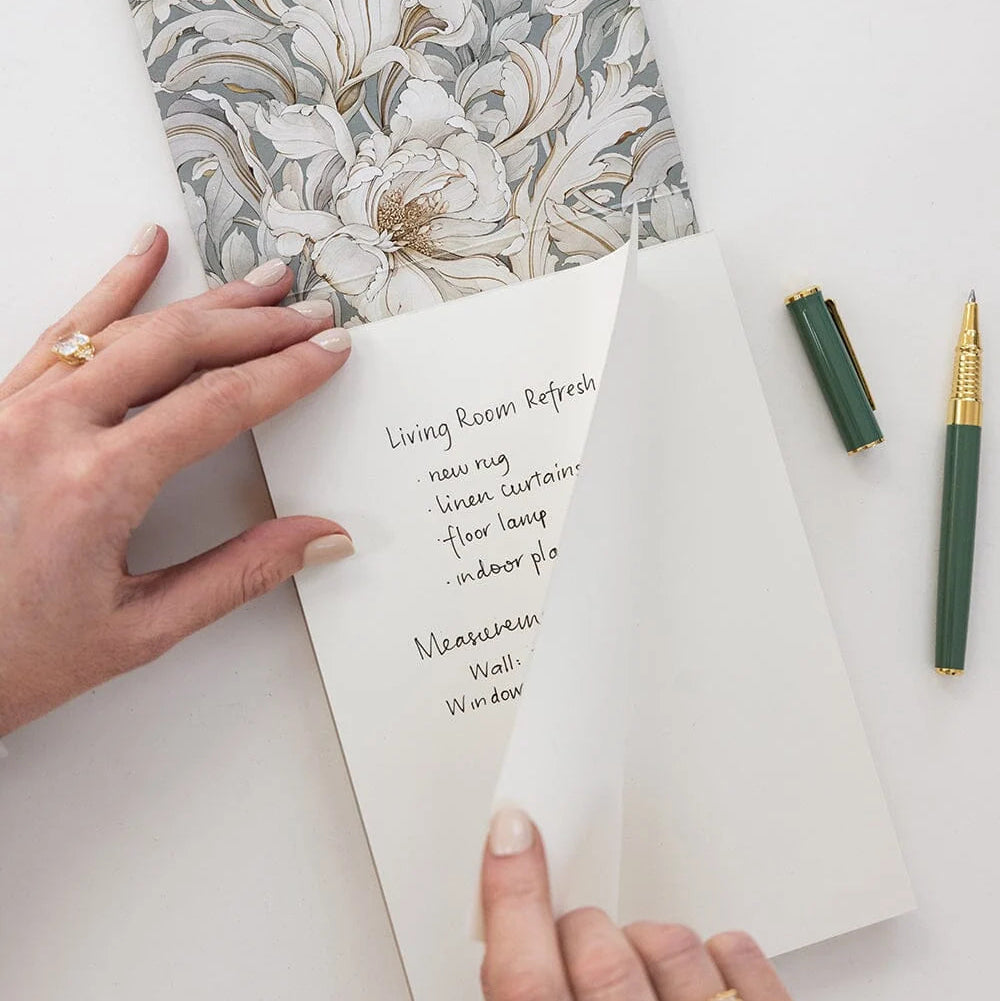 Living Room Refresh
· new rug
· linen curtains
· floor lamp
· indoor
Wall:
Window